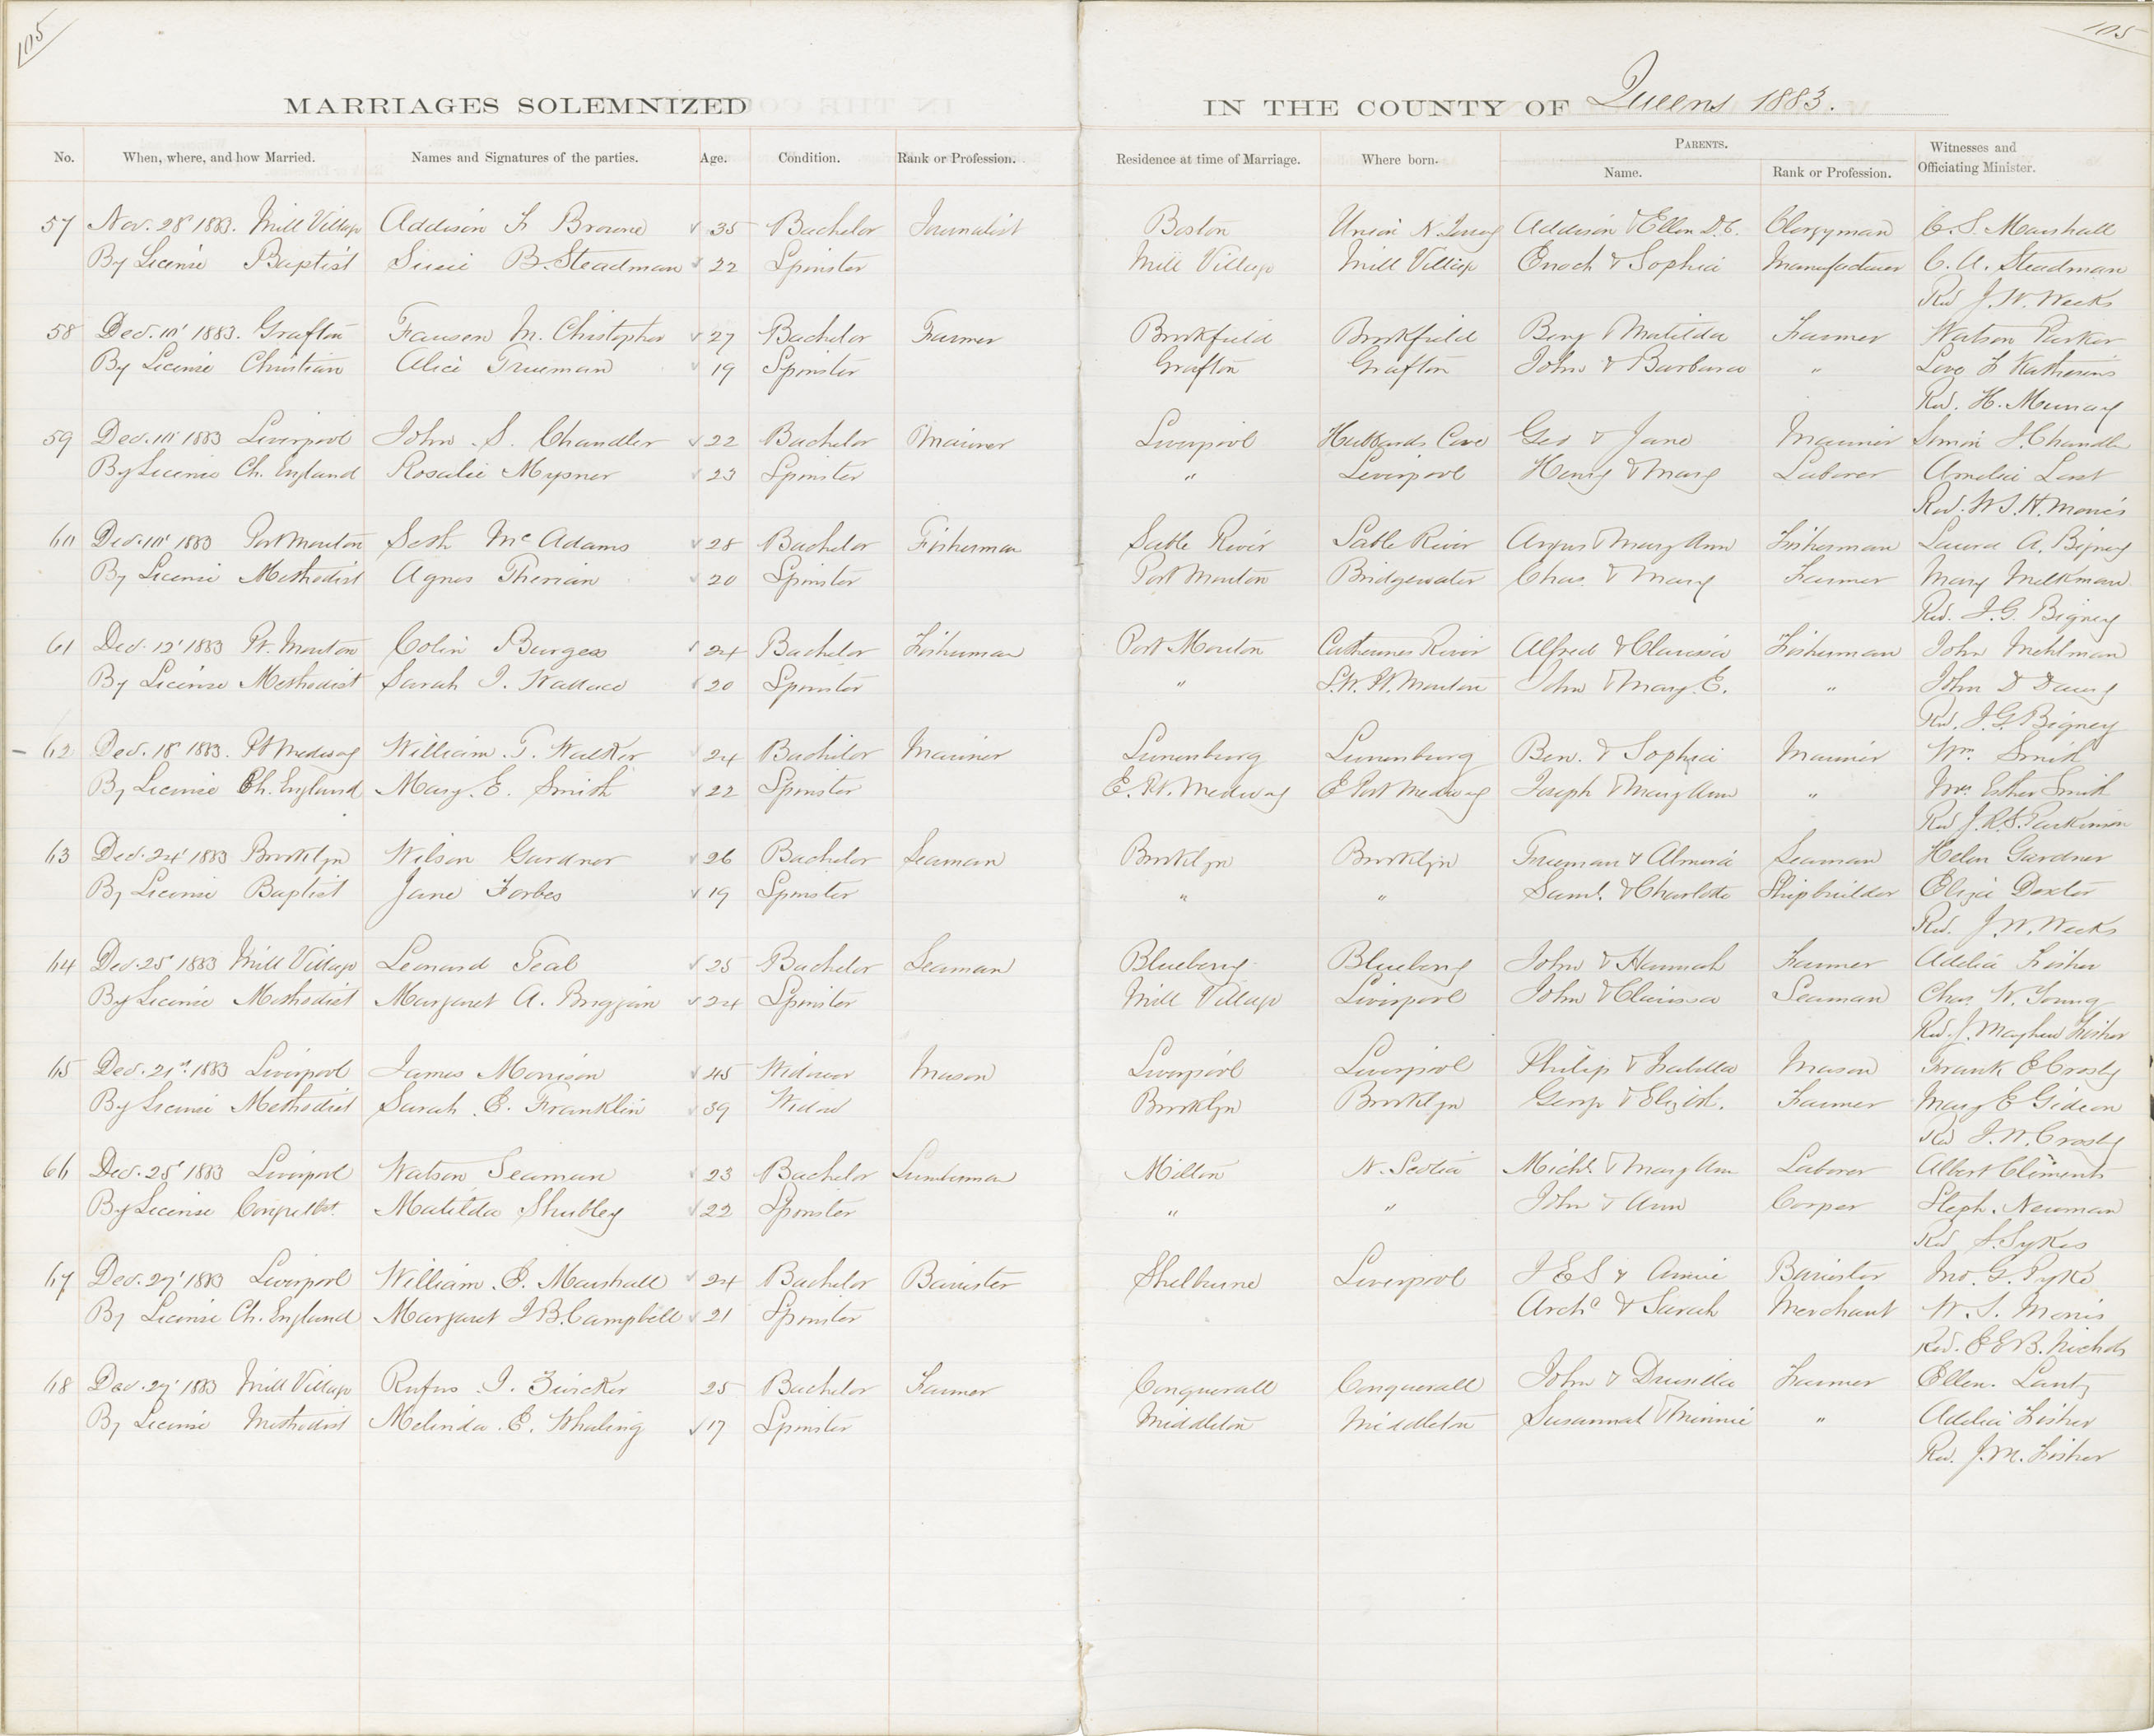 105
105
MARRIAGES SOLEMNIZED IN THE COUNTY OF Queens 1883.
No. When, where, and how Married. Names and Signatures of the parties. Age. Condition. Rank or Profession. Residence at time of Marriage. Where born. PARENTS. Name. Rank or Profession. Witnesses and Officiating Minister.
57 Nov. 28' 1883. Mill Village Addison F Browne 35 Bachelor Journalist Boston Union N. Jersey Addison & Ellen D.C. Clergyman C. S. Marshall
By License Baptist Susie B. Steadman 22 Spinster Mill Village Mill Village Enoch & Sophia Manufacturer C. A. Steadman
Rev J. W. Weeks
58 Dec. 10' 1883. Grafton M. Christopher 27 Bachelor Farmer Brookfield Brookfield Benj & Matilda Farmer Watson Parker
By License Christian Alice Trueman 19 Spinster Grafton Grafton John & Barbara "
Rev. H. Murray
59 Dec. 10' 1883 Liverpool John S. Chandler 22 Bachelor Mariner Liverpool Hubbards Cove Geo & Jane Mariner Simon J. Chandler
By License Ch. England Rosalie Mysner 23 Spinster " Liverpool Henry & Mary Laborer Amelia
Rev. W S. H. Morris
60 Dec. 10' 1883 Port Mouton Seth Mc Adams 28 Bachelor Fisherman Sable River Sable River Angus & Mary Ann Fisherman Laura A. Bigney
By License Methodist Agnes Therian 20 Spinster Port Mouton Bridgewater Chas & Mary Farmer Mary
Rev. J. G. Bigney
61 Dec. 12' 1883 Pt. Mouton Colin Burgess 24 Bachelor Fisherman Port Mouton Catherines River Alfred & Clarissa Fisherman John Mehlman
By License Methodist Sarah J. Wallace 20 Spinster " S.W. Pt. Mouton John & Mary E. " John D
Rev. J. G. Bigney
62 Dec. 18' 1883. Pt Medway William T. Walker 24 Bachelor Mariner Lunenburg Lunenburg Ben. & Sophia Mariner Wm. Smith
By License Ch. England Mary E. Smith 22 Spinster E. Pt. Medway E Port Medway Joseph & Mary Ann " Mrs Esther Smith
Rev J. R. S. Parkinson
63 Dec. 24' 1883 Brooklyn Wilson Gardner 26 Bachelor Seaman Brooklyn Brooklyn Trueman & Almira Seaman Helen Gardner
By License Baptist Jane Forbes 19 Spinster " " Saml. & Charlotte Shipbuilder Eliza Dexter
Rev. J. W. Weeks
64 Dec. 25' 1883 Mill Village Leonard Teal 25 Bachelor Seaman Blueberry Blueberry John & Hannah Farmer Adelia Fisher
By License Methodist Margaret A. 24 Spinster Mill Village Liverpool John & Clarissa Seaman Chas. W. Young
Rev. J. Mayhew Fisher
65 Dec. 21st. 1883 Liverpool James Morrison 45 Widower Mason Liverpool Liverpool Philip & Isabella Mason Frank E Crosby
By License Methodist Sarah E. Franklin 39 Widow Brooklyn Brooklyn George & Elizth. Farmer Mary E Gideon
Rev J. W. Crosby
66 Dec. 25' 1883 Liverpool Watson Seaman 23 Bachelor Lumberman Milton N. Scotia Michl. & Mary Ann Laborer Albert Clements
By License Matilda Shubley 22 Spinster " " John & Ann Cooper Steph. Newman
Rev S. Sykes
67 Dec. 27' 1883 Liverpool William E. Marshall 24 Bachelor Barrister Shelburne Liverpool J E S & Annie Barrister Jno. G. Pyke
By License Ch. England Margaret J B. Campbell 21 Spinster Archd & Sarah Merchant W. S. Morris
Rev. E E B. Nichols
68 Dec. 27' 1883 Mill Village Rufus J. Zwicker 25 Bachelor Farmer Conquerall Conquerall John & Drusilla Farmer Ellen Lantz
By License Methodist Melinda E. Whaling 17 Spinster Middleton Middleton & Minnie " Adelia Fisher
Rev. J. M. Fisher